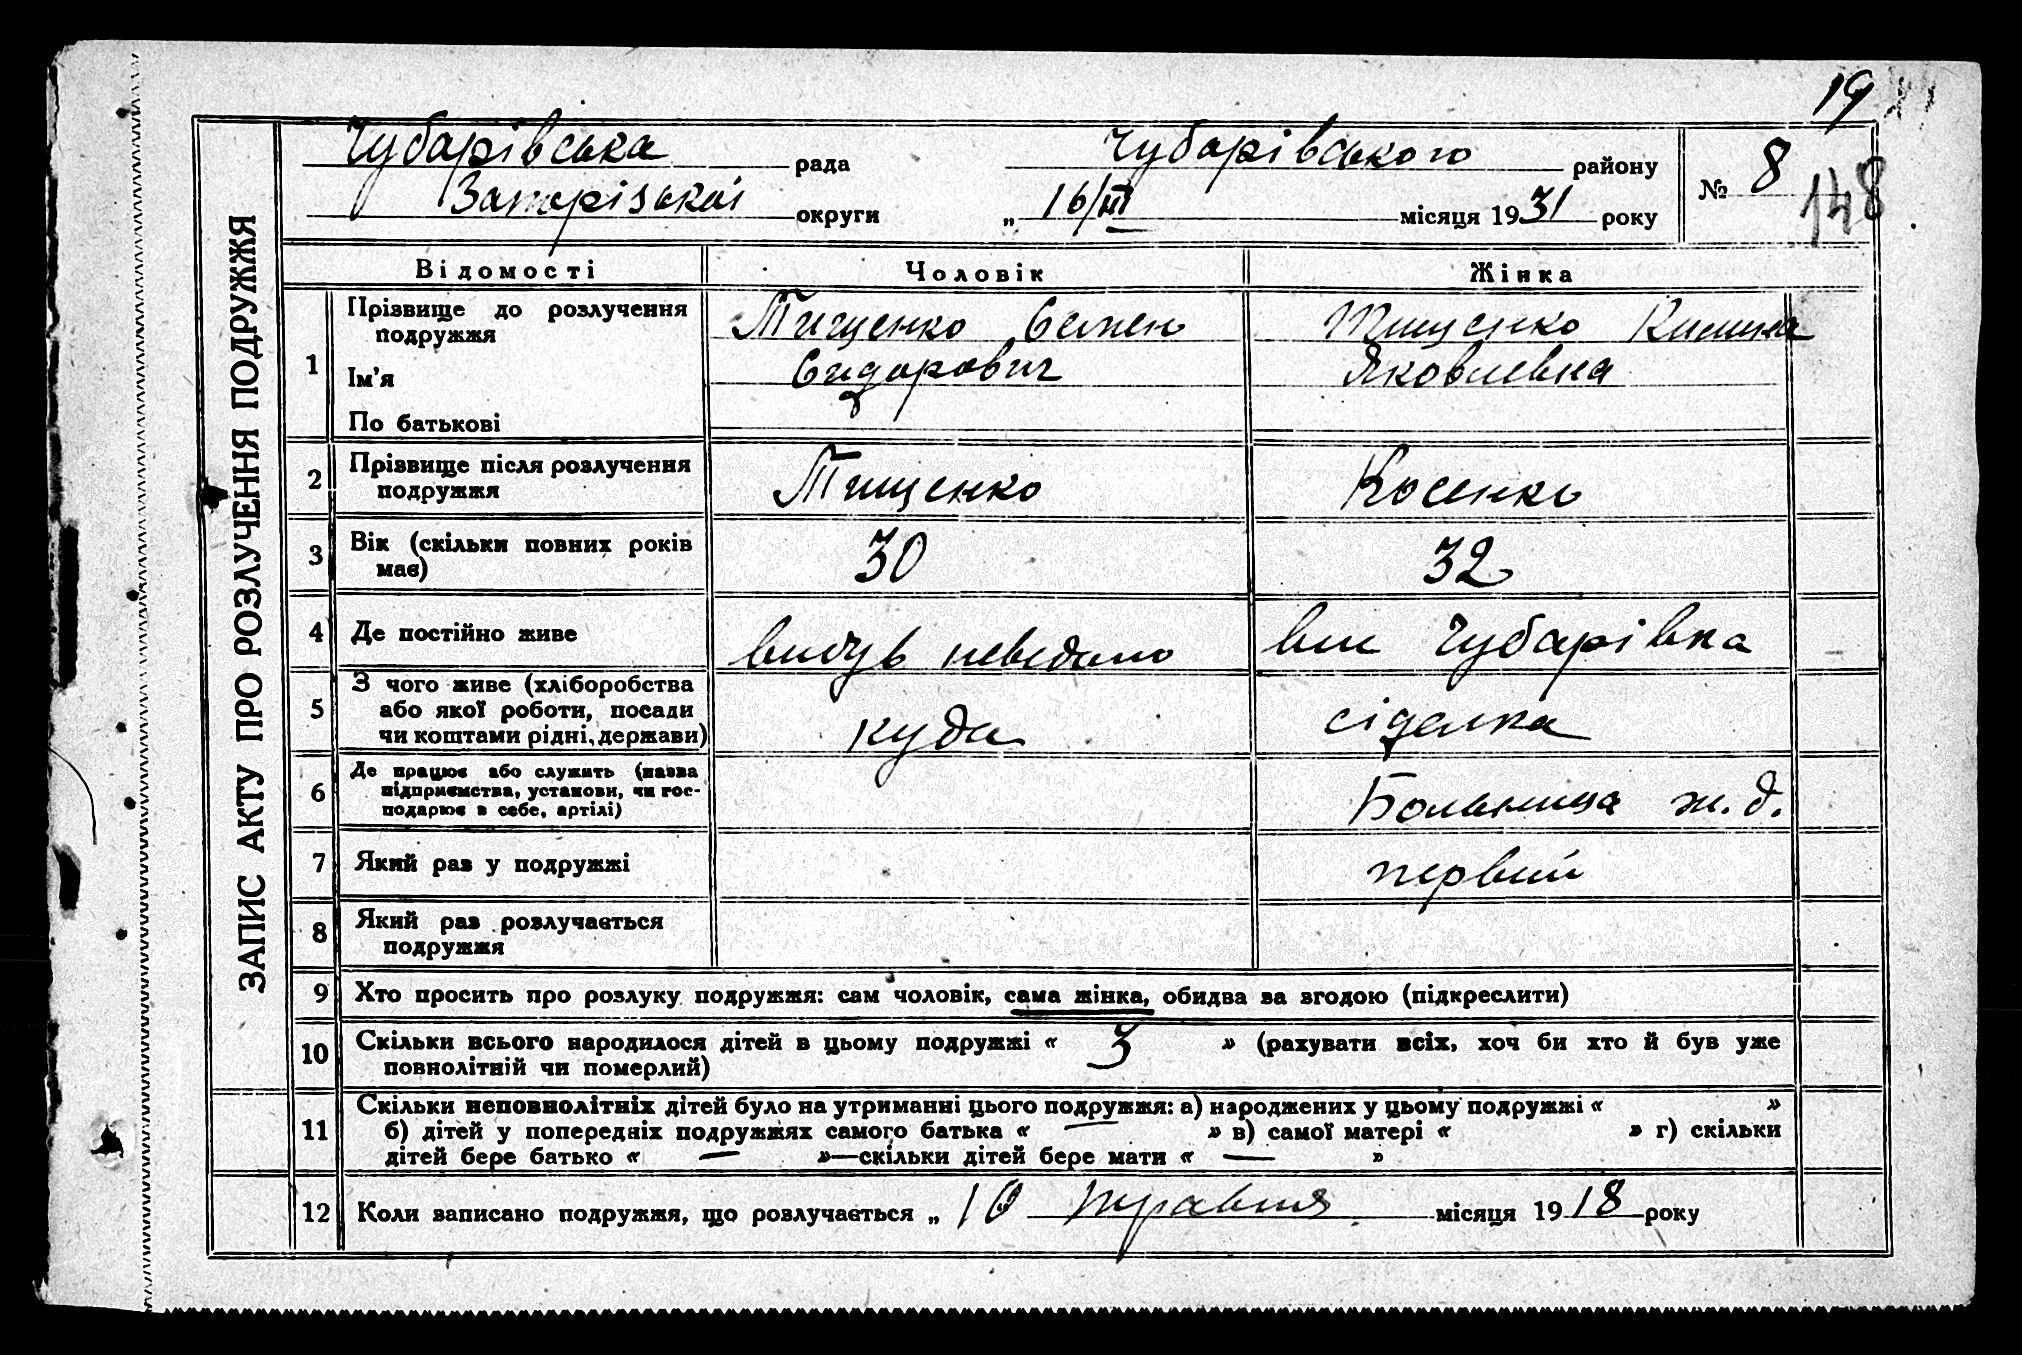 19
ЗАПИС АКТУ ПРО РОЗЛУЧЕННЯ ПОДРУЖЖЯ
Чубарівська рада Чубарівського району
Запорізької округи „ 16/III місяця 1931 року
№ 8
148
Відомості Чоловік Жінка
1 Прізвище до розлучення подружжя Тищенко Семен Тищенко
Ім'я Сидорович Яковлевна
По батькові
2 Прізвище після розлучення подружжя Тищенко Косенко
3 Вік (скільки повних років має) 30 32
4 Де постійно живе вибув неведомо Чубарівка
5 З чого живе (хліборобства або якої роботи, посади чи коштами рідні, держави) куда сіделка
6 Де працює або служить (назва підприємства, установи, чи господарює в себе, артілі) Больница ж.д.
7 Який раз у подружжі первий
8 Який раз розлучається подружжя
9 Хто просить про розлуку подружжя: сам чоловік, сама жінка, обидва за згодою (підкреслити)
10 Скільки всього народилося дітей в цьому подружжі « 3 » (рахувати всіх, хоч би хто й був уже
повнолітній чи померлий)
11 Скільки неповнолітніх дітей було на утриманні цього подружжя: а) народжених у цьому подружжі « »
б) дітей у попередніх подружжях самого батька « — » в) самої матері « » г) скільки
дітей бере батько « — »—скільки дітей бере мати « — »
12 Коли записано подружжя, що розлучається „ 10 травня місяця 1918 року